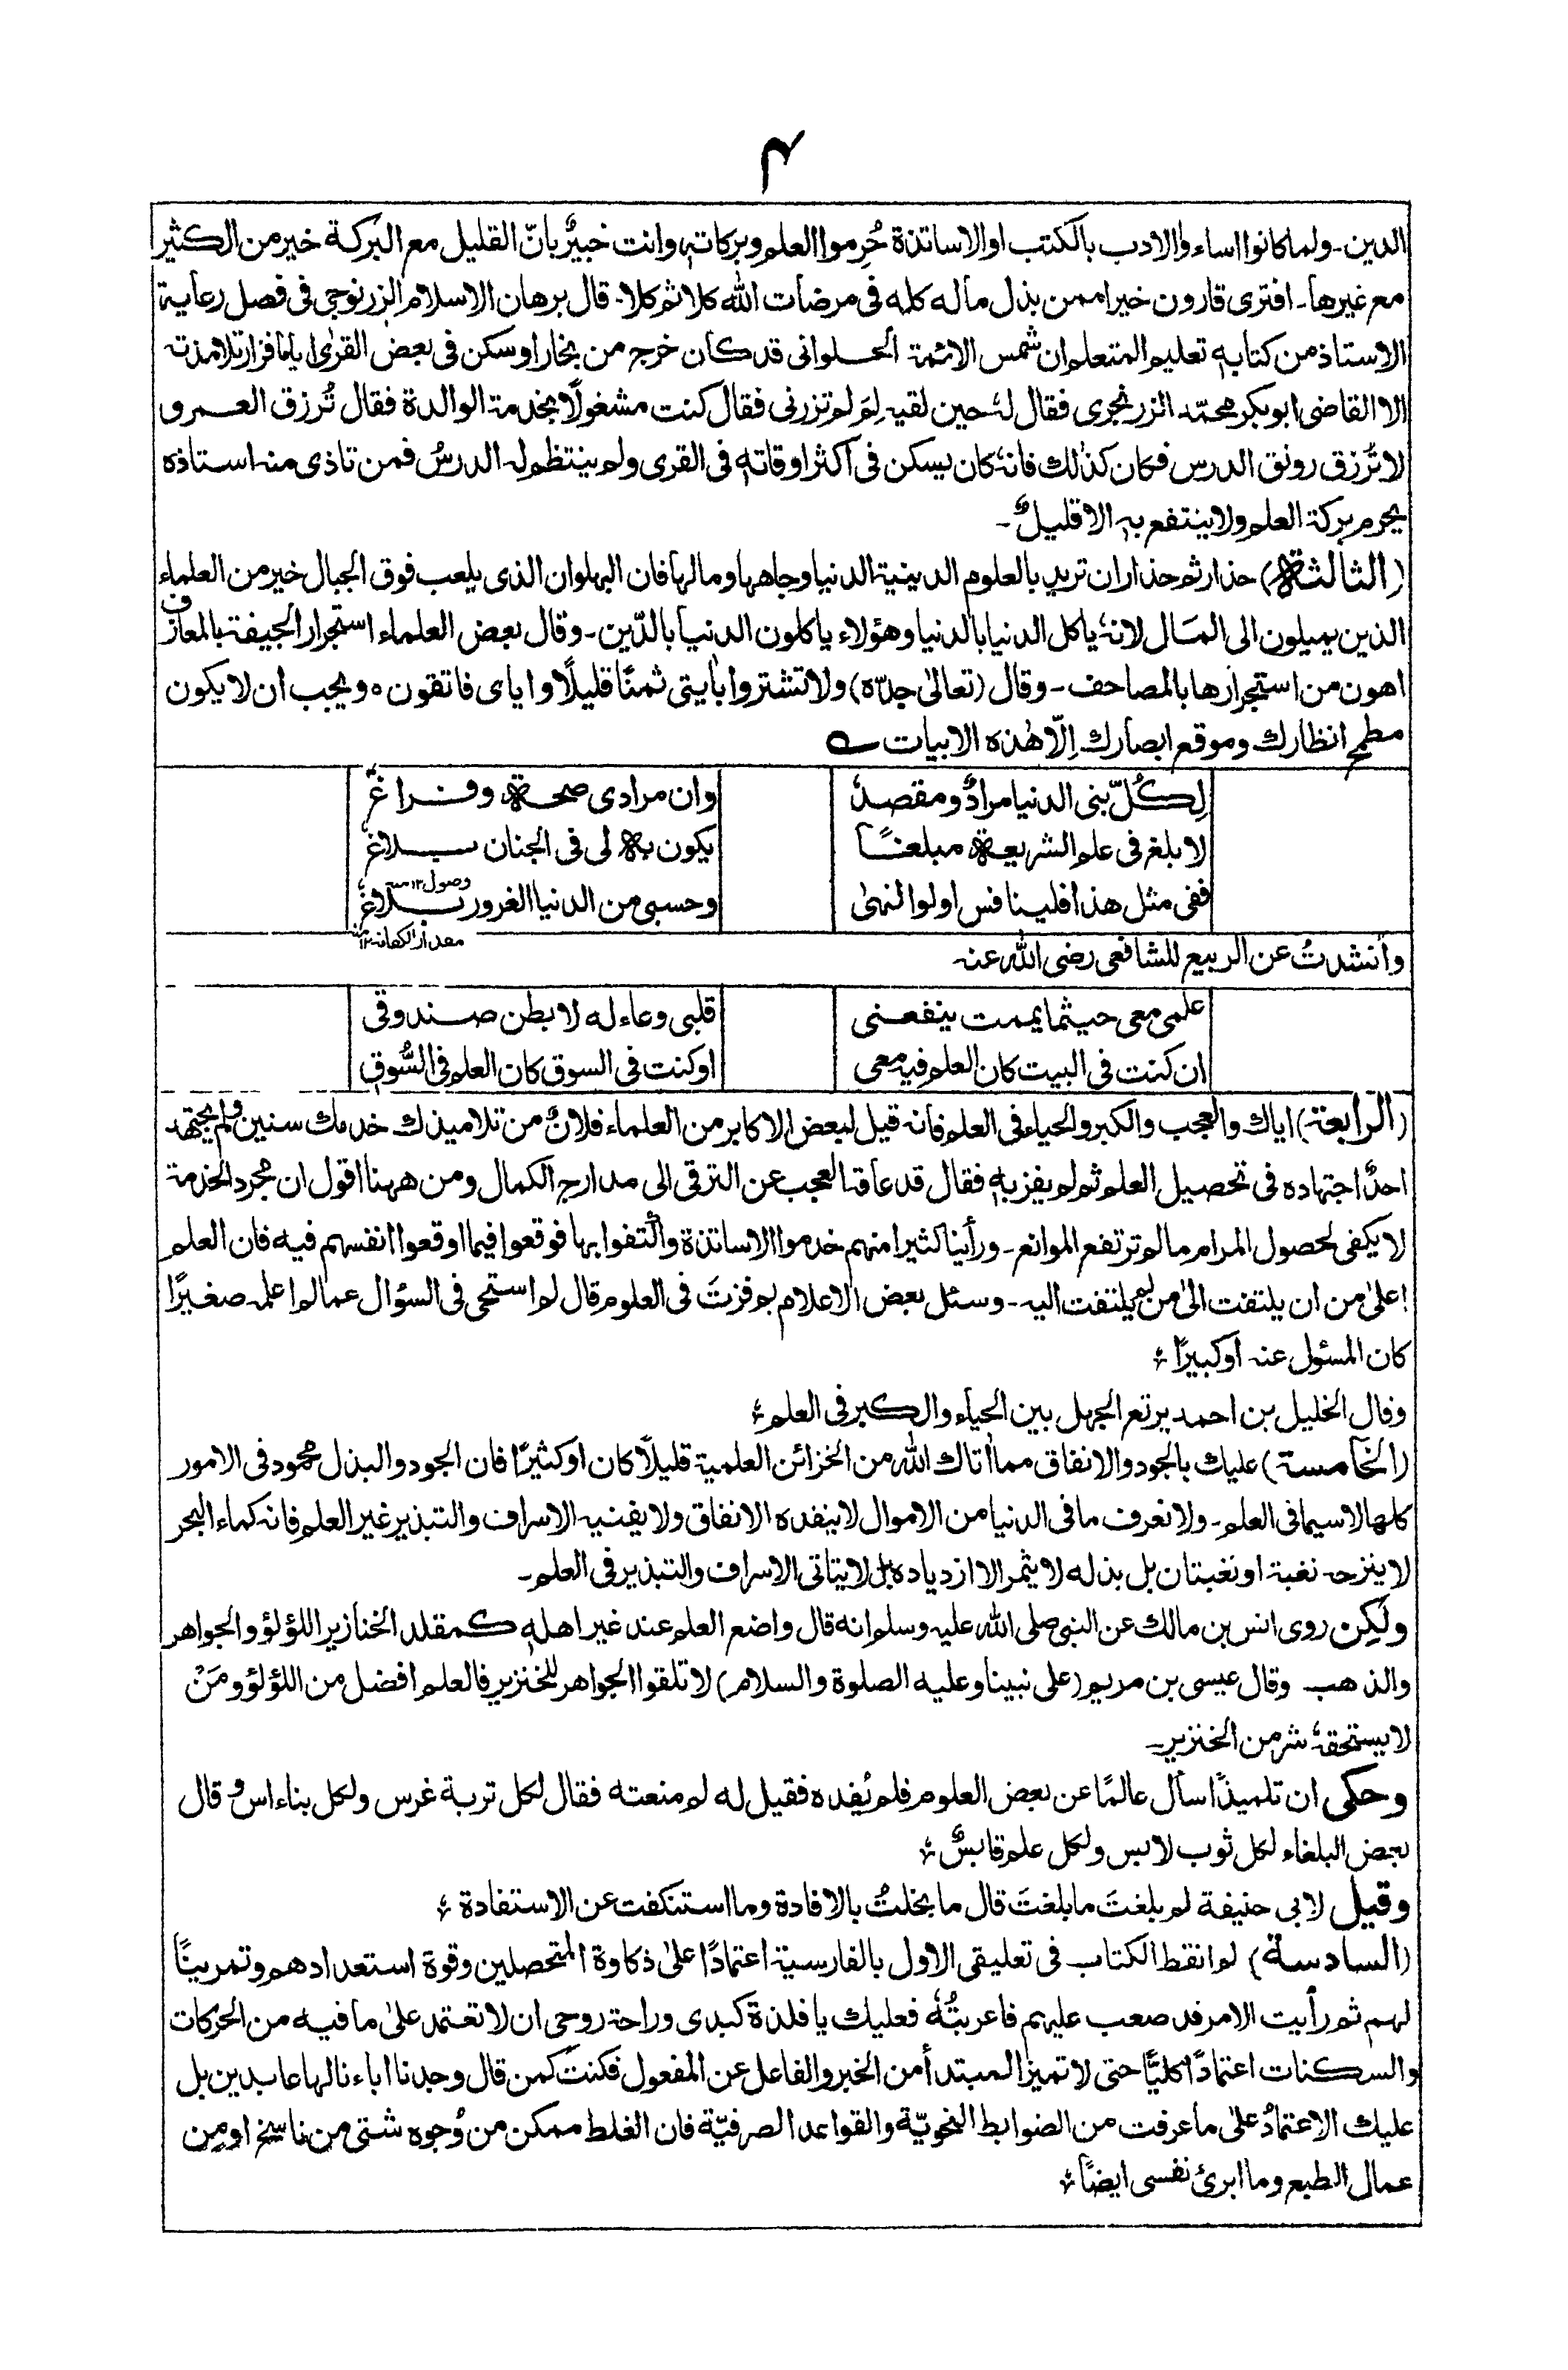 ۴
الدين۔ ولما كانوا اساءوا الادب بالكتب او الاساتذة حُرِموا العلم وبركاتهٖ وانت خبيرٌ بانّ القليل مع البركة خير من الكثير
مع غيرها۔ افترى قارون خيرا ممن بذل ماله كله فى مرضات الله كلا ثم كلا۔ قال برهان الاسلام الزرنوجى فى فصل رعاية
الاستاذ من كتابهٖ تعليم المتعلم ان شمس الائمة الحلوانى قد كان خرج من بخارا وسكن فى بعض القرىٰ اياما فزار تلامذته
الا القاضى ابوبكر محمّد الزرنجرى فقال لهٗ حين لقيه لِمَ لم تزرنى فقال كنت مشغولًا بخدمة الوالدة فقال تُرزق العمر و
لا تُرزق رونق الدرس فكان كذٰلك فانهٗ كان يسكن فى اكثر اوقاتهٖ فى القرى ولم ينتظم له الدرسُ فمن تاذى منه استاذه
يحرم بركة العلم ولا ينتفع بهٖ الا قليلٌ۔
(الثالثة) حذار ثم حذار ان تريد بالعلوم الدينية الدنيا وجاهها ومالها فان البهلوان الذى يلعب فوق الجبال خير من العلماء
الذين يميلون الى المال لانهٗ ياكل الدنيا بالدنيا وهؤلاء ياكلون الدنيا بالدّين۔ وقال بعض العلماء استجرار الجيفة بالمعازف
اهون من استجرارها بالمصاحف۔ وقال (تعالىٰ جدّه) ولا تشتروا باٰيتى ثمنًا قليلًا واياى فاتقون ٥ ويجب ان لا يكون
مطمح انظارك وموقع ابصارك اِلّا هٰذه الابيات ؎
لِكُلّ بنى الدنيا مرادٌ ومقصدٌ وان مرادى صحة وفراغٌ
لابلغ فى علم الشريعة مبلغًا يكون به لى فى الجنان بلاغٌ
ففى مثل هذا فلينافس اولوا النهىٰ وحسبى من الدنيا الغرور بلاغٌ
وانشدتُ عن الربيع للشافعى رضى الله عنه
علمى معى حيثما يممت ينفعنى قلبى وعاء له لا بطن صندوقى
ان كنت فى البيت كان العلم فيه معى اوكنت فى السوق كان العلم فى السُّوق
(الرابعة) اياك والعجب والكبر والحياء فى العلم فانه قيل لبعض الاكابر من العلماء فلانٌ من تلاميذك خدمك سنين ولم يجتهد
احدٌ اجتهاده فى تحصيل العلم ثم لم يفز بهٖ فقال قد عاقه العجب عن الترقى الى مدارج الكمال ومن ههنا اقول ان مجرد الخدمة
لا يكفى لحصول المرام ما لم ترتفع الموانع۔ ورأينا كثيرا منهم خدموا الاساتذة واكتفوا بها فوقعوا فيما اوقعوا انفسهم فيه فان العلم
اعلىٰ من ان يلتفت الىٰ من لم يلتفت اليه۔ وسئل بعض الاعلام بم فزتَ فى العلوم قال لم استحى فى السؤال عما لم اعلمه صغيرًا
كان المسئول عنه اوكبيرًا ؞
وقال الخليل بن احمد يرتع الجهل بين الحياء والكبر فى العلم ؞
(الخامسة) عليك بالجود والانفاق مما اٰتاك الله من الخزائن العلمية قليلًا كان اوكثيرًا فان الجود والبذل محمود فى الامور
كلها لاسيما فى العلم۔ ولا نعرف ما فى الدنيا من الاموال لا ينفده الانفاق ولا يفنيه الاسراف والتبذير غير العلم فانه كماء البحر
لا ينزحه نغبة او نغبتان بل بذله لا يثمر الا ازدياده بل لا يتاتى الاسراف والتبذير فى العلم۔
ولكِن روى انس بن مالك عن النبى صلى الله عليه وسلم انه قال واضع العلم عند غير اهلهٖ كمقلد الخنازير اللؤلؤ والجواهر
والذهب وقال عيسى بن مريم (على نبينا وعليه الصلوة والسلام) لا تلقوا الجواهر للخنزير فالعلم افضل من اللؤلؤ ومَنْ
لا يستحقهٗ شر من الخنزير۔
وحكى ان تلميذًا سأل عالمًا عن بعض العلوم فلم يُفده فقيل له لم منعته فقال لكل تربة غرس ولكل بناء اس و قال
بعض البلغاء لكل ثوب لابس ولكل علم قابسٌ ؞
وقيل لابى حنيفة لم بلغتَ ما بلغتَ قال ما بخلتُ بالافادة وما استنكفت عن الاستفادة ؞
(السادسة) لم انقط الكتاب فى تعليقى الاول بالفارسية اعتمادًا علىٰ ذكاوة المتحصلين وقوة استعدادهم وتمرينًا
لهم ثم رأيت الامر قد صعب عليهم فاعربتُهٗ فعليك يا فلذة كبدى وراحة روحى ان لا تعتمد علىٰ ما فيه من الحركات
والسكنات اعتمادًا كليًّا حتى لا تميز المبتدأ من الخبر والفاعل عن المفعول فكنتَ كمن قال وجدنا اٰباءنا لها عابدين بل
عليك الاعتمادُ علىٰ ما عرفت من الضوابط النحويّة والقواعد الصرفيّة فان الغلط ممكن من وُجوه شتى من ناسخ او مِن
عمال الطبع وما ابرئ نفسى ايضًا ؞